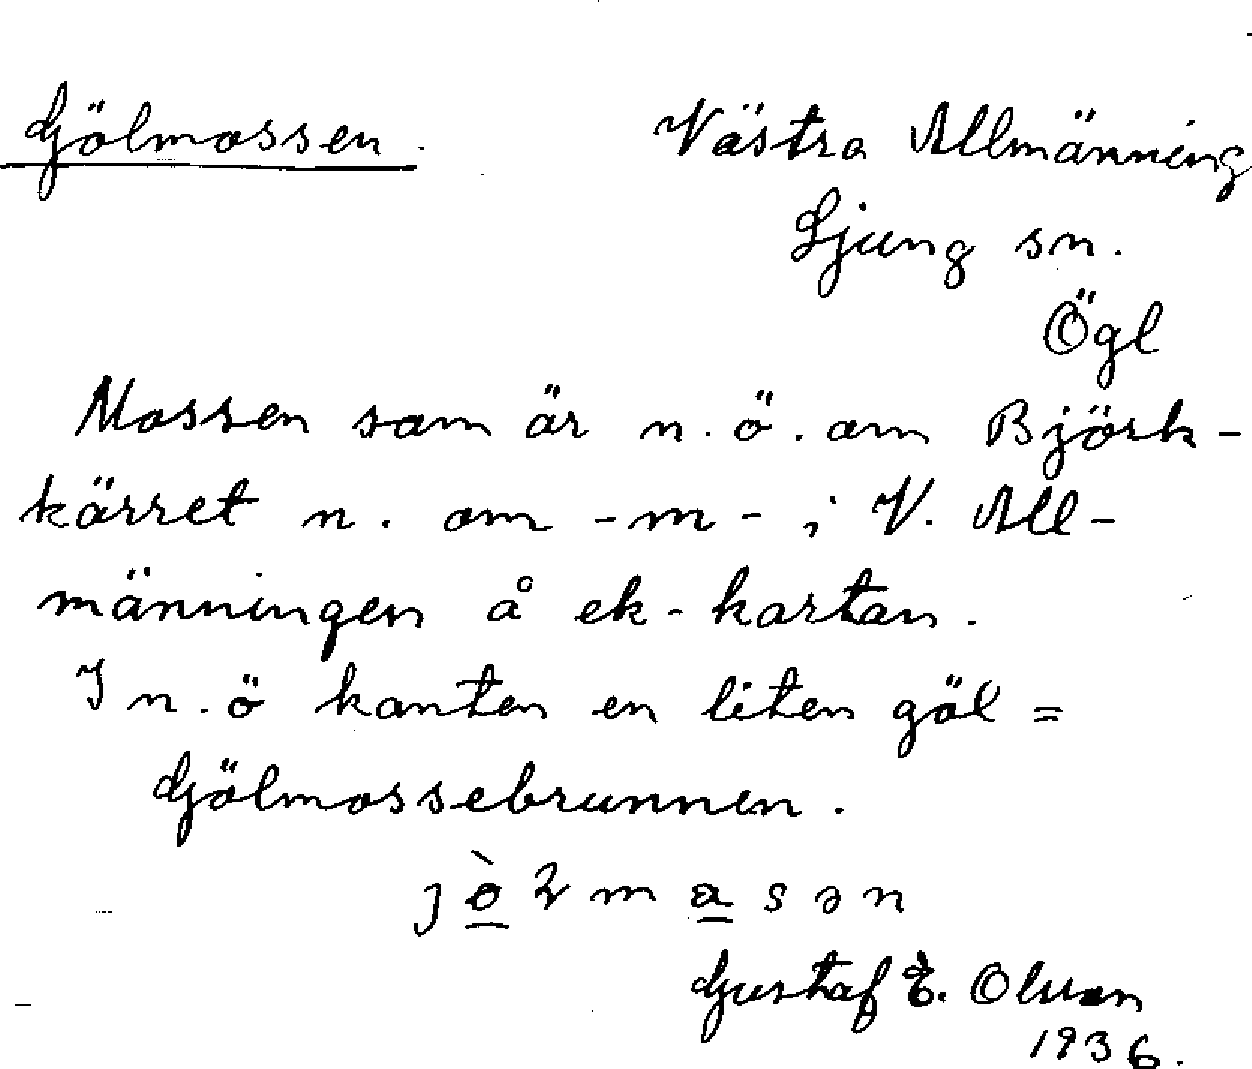 Gölmossen.
Västra Allmänning
Ljung sn.
Ögl
Mossen som är n.ö. om Björk-
kärret n. om -m- i V. All-
männingen å ek-kartan.
I n.ö kanten en liten göl =
Gölmossebrunnen.
Gustaf E. Olsson
1936.